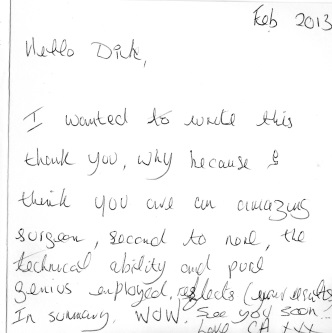 Feb 2013
Hello Dick,
I wanted to write this
thank you, why because I
think you are an amazing
surgeon, second to none, the
technical ability and pure
genius employed, reflects (your results
In summary, WOW. See you soon..
Love CA XX